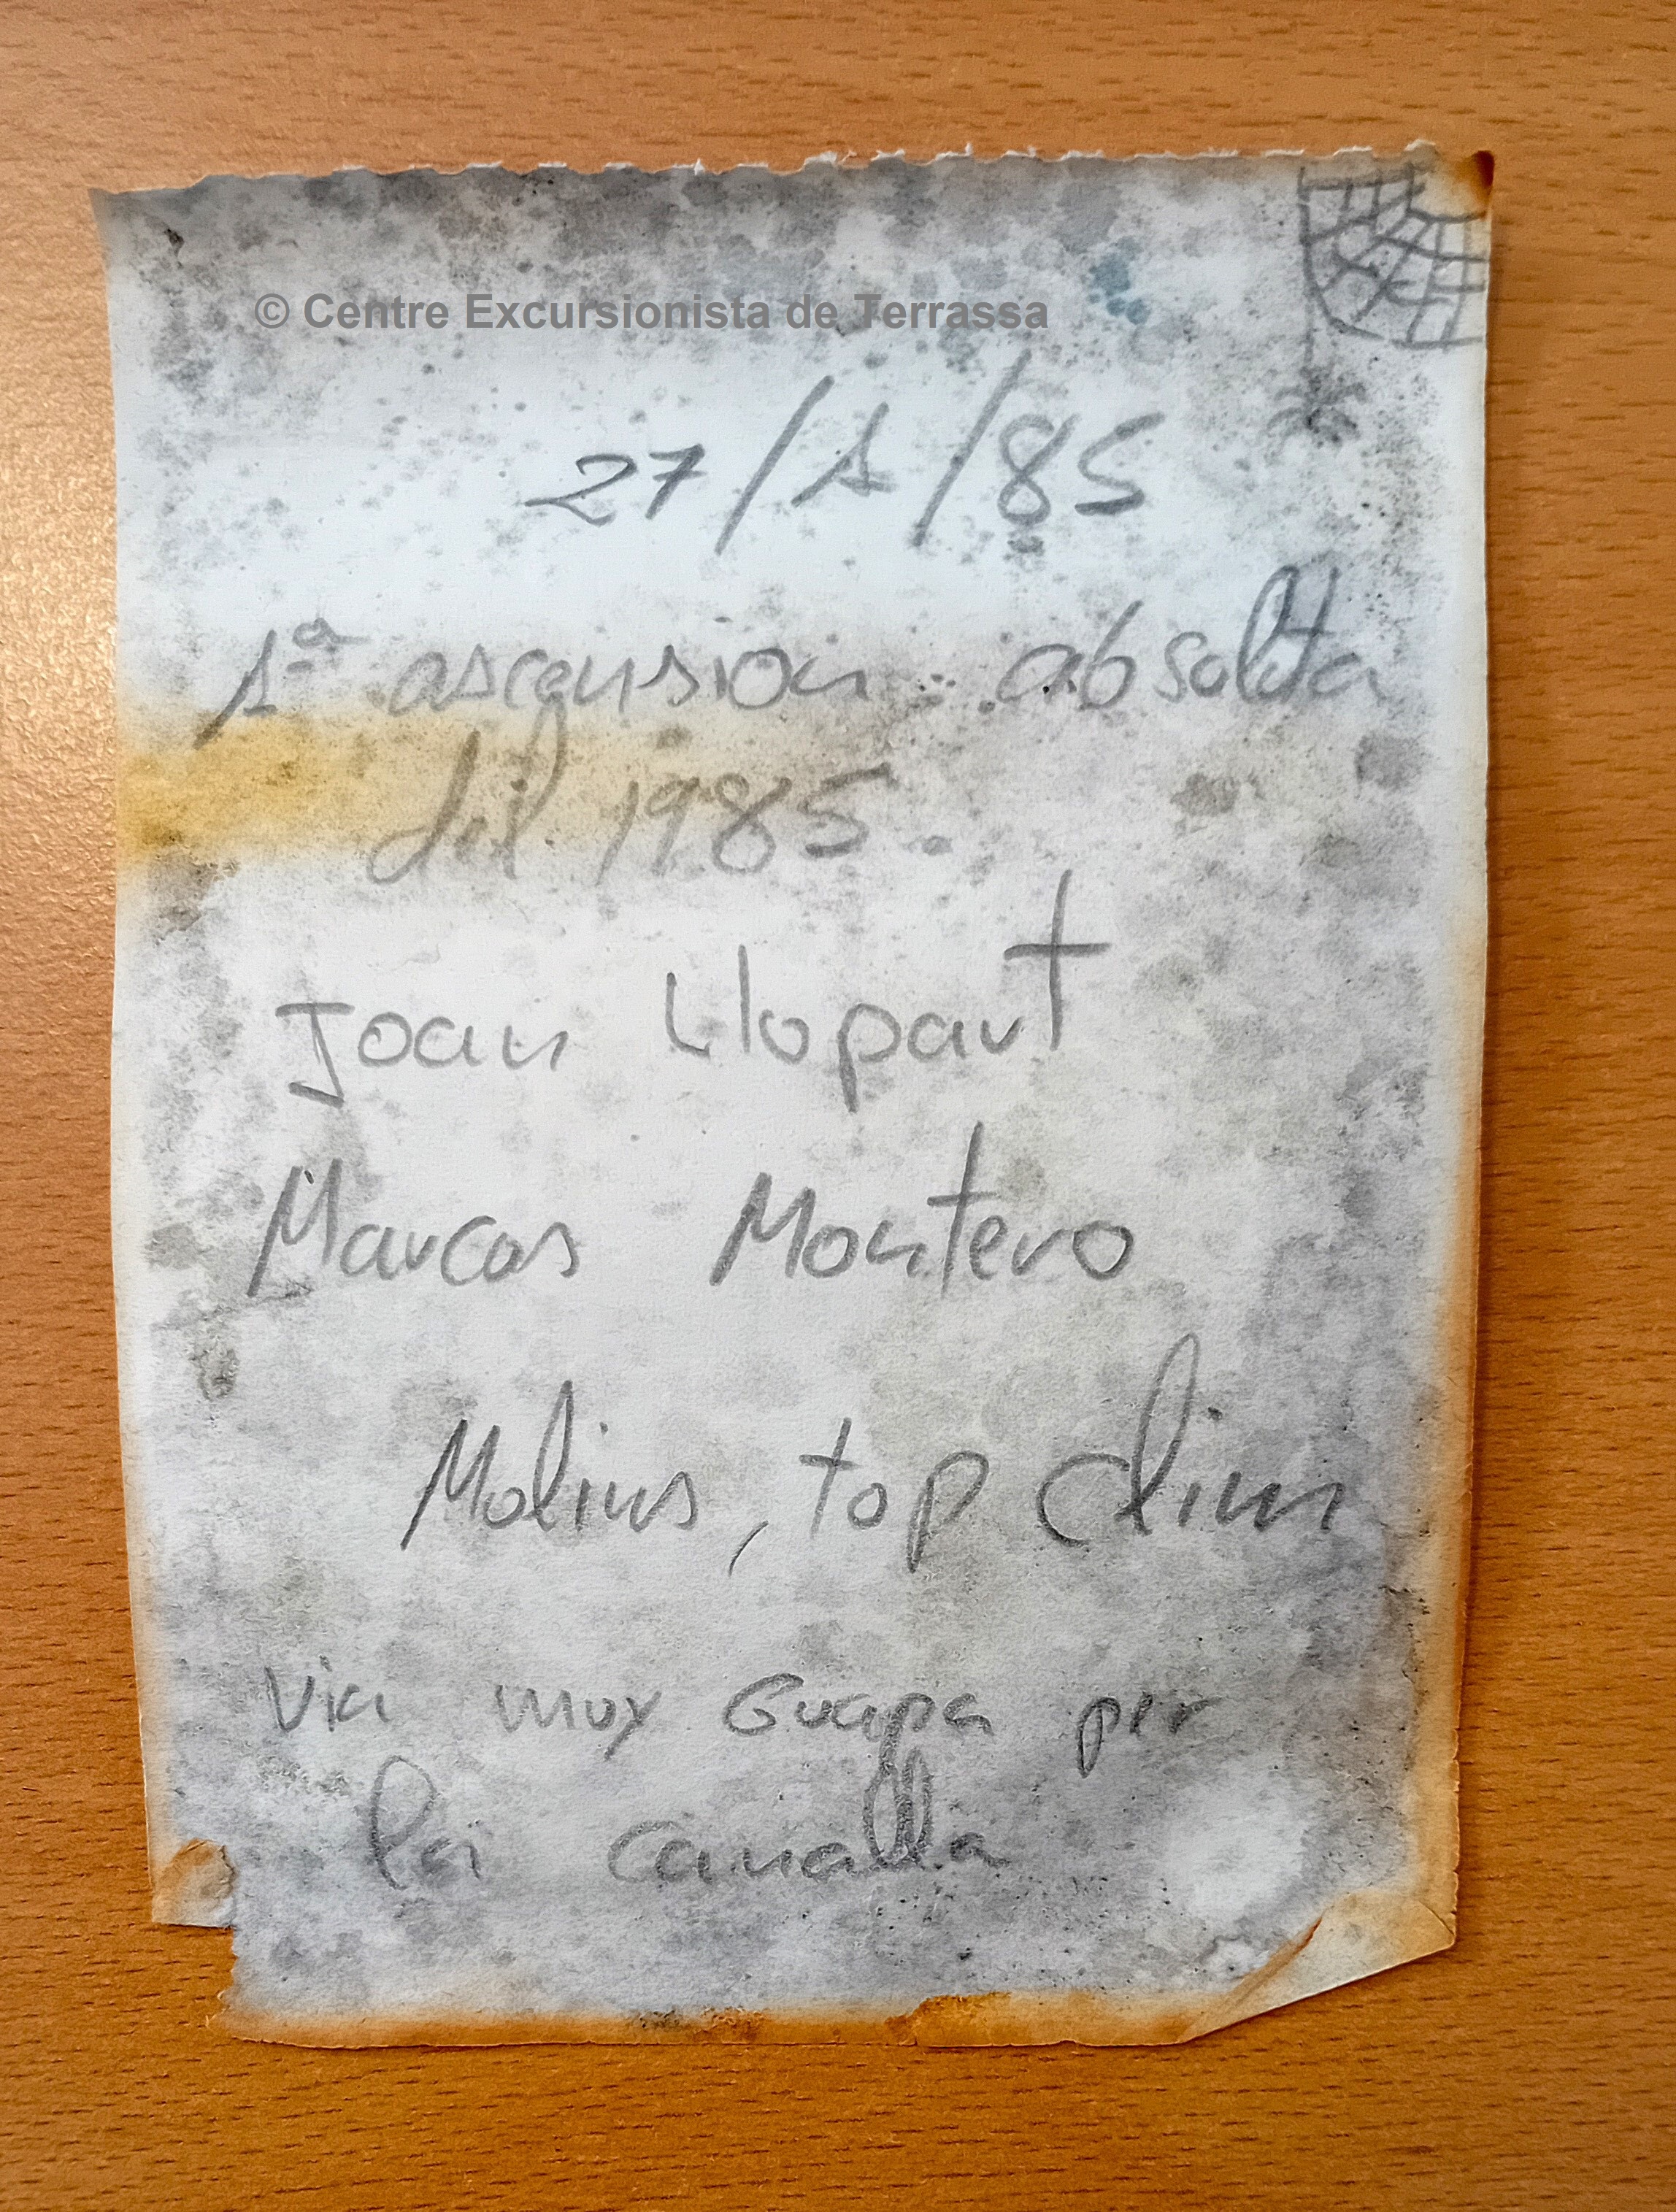 © Centre Excursionista de Terrassa
27/1/85
1ª ascension absoluta
del 1985.
Joan Llopart
Marcos Montero
Molins, top Clim
Via muy Guapa per
la canalla